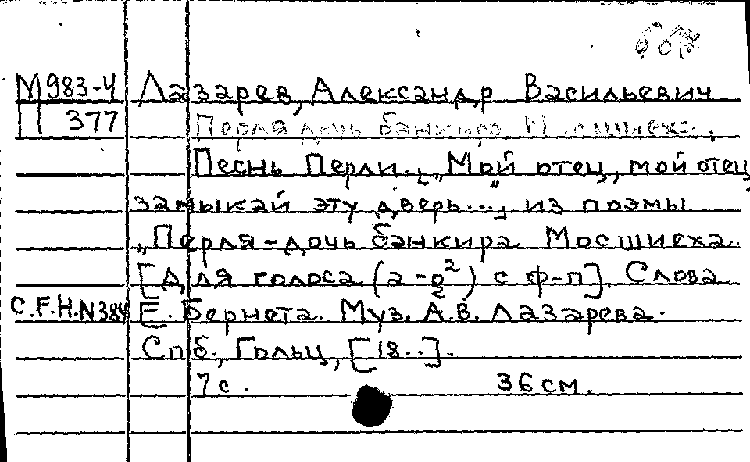 М983-4 Лазарев, Александр Васильевич
П 377 Перля дочь банкира М
Песнь Перли. [„Мой отец, мой отец,
замыкай эту дверь...“] из поэмы
„Перля-дочь банкира Мосшиеха.
[Для голоса (a-g²) с ф-п]. Слова
C.F.H.N384 Е. Бернета. Муз. А.В. Лазарева.
Спб., Гольц, [18..].
7 с. 36 см.